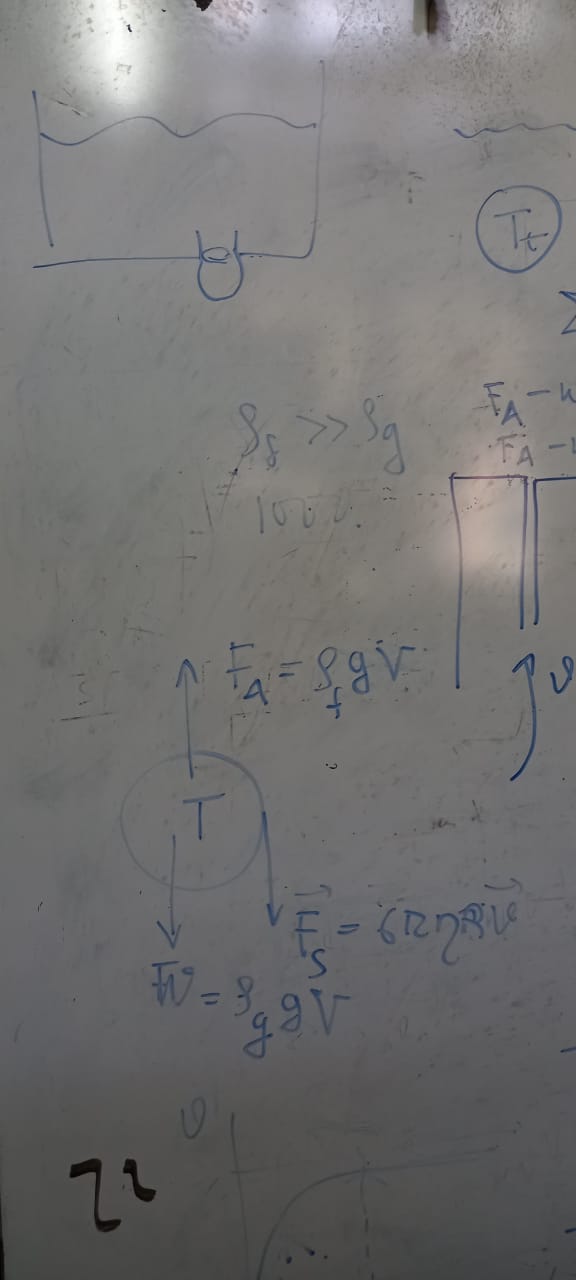 T_t
ρ_f >> ρ_g
1000.
F_A -
F_A -
F_A = ρ_f g V
T
F_S = 6πηRv
W = ρ_g g V
v